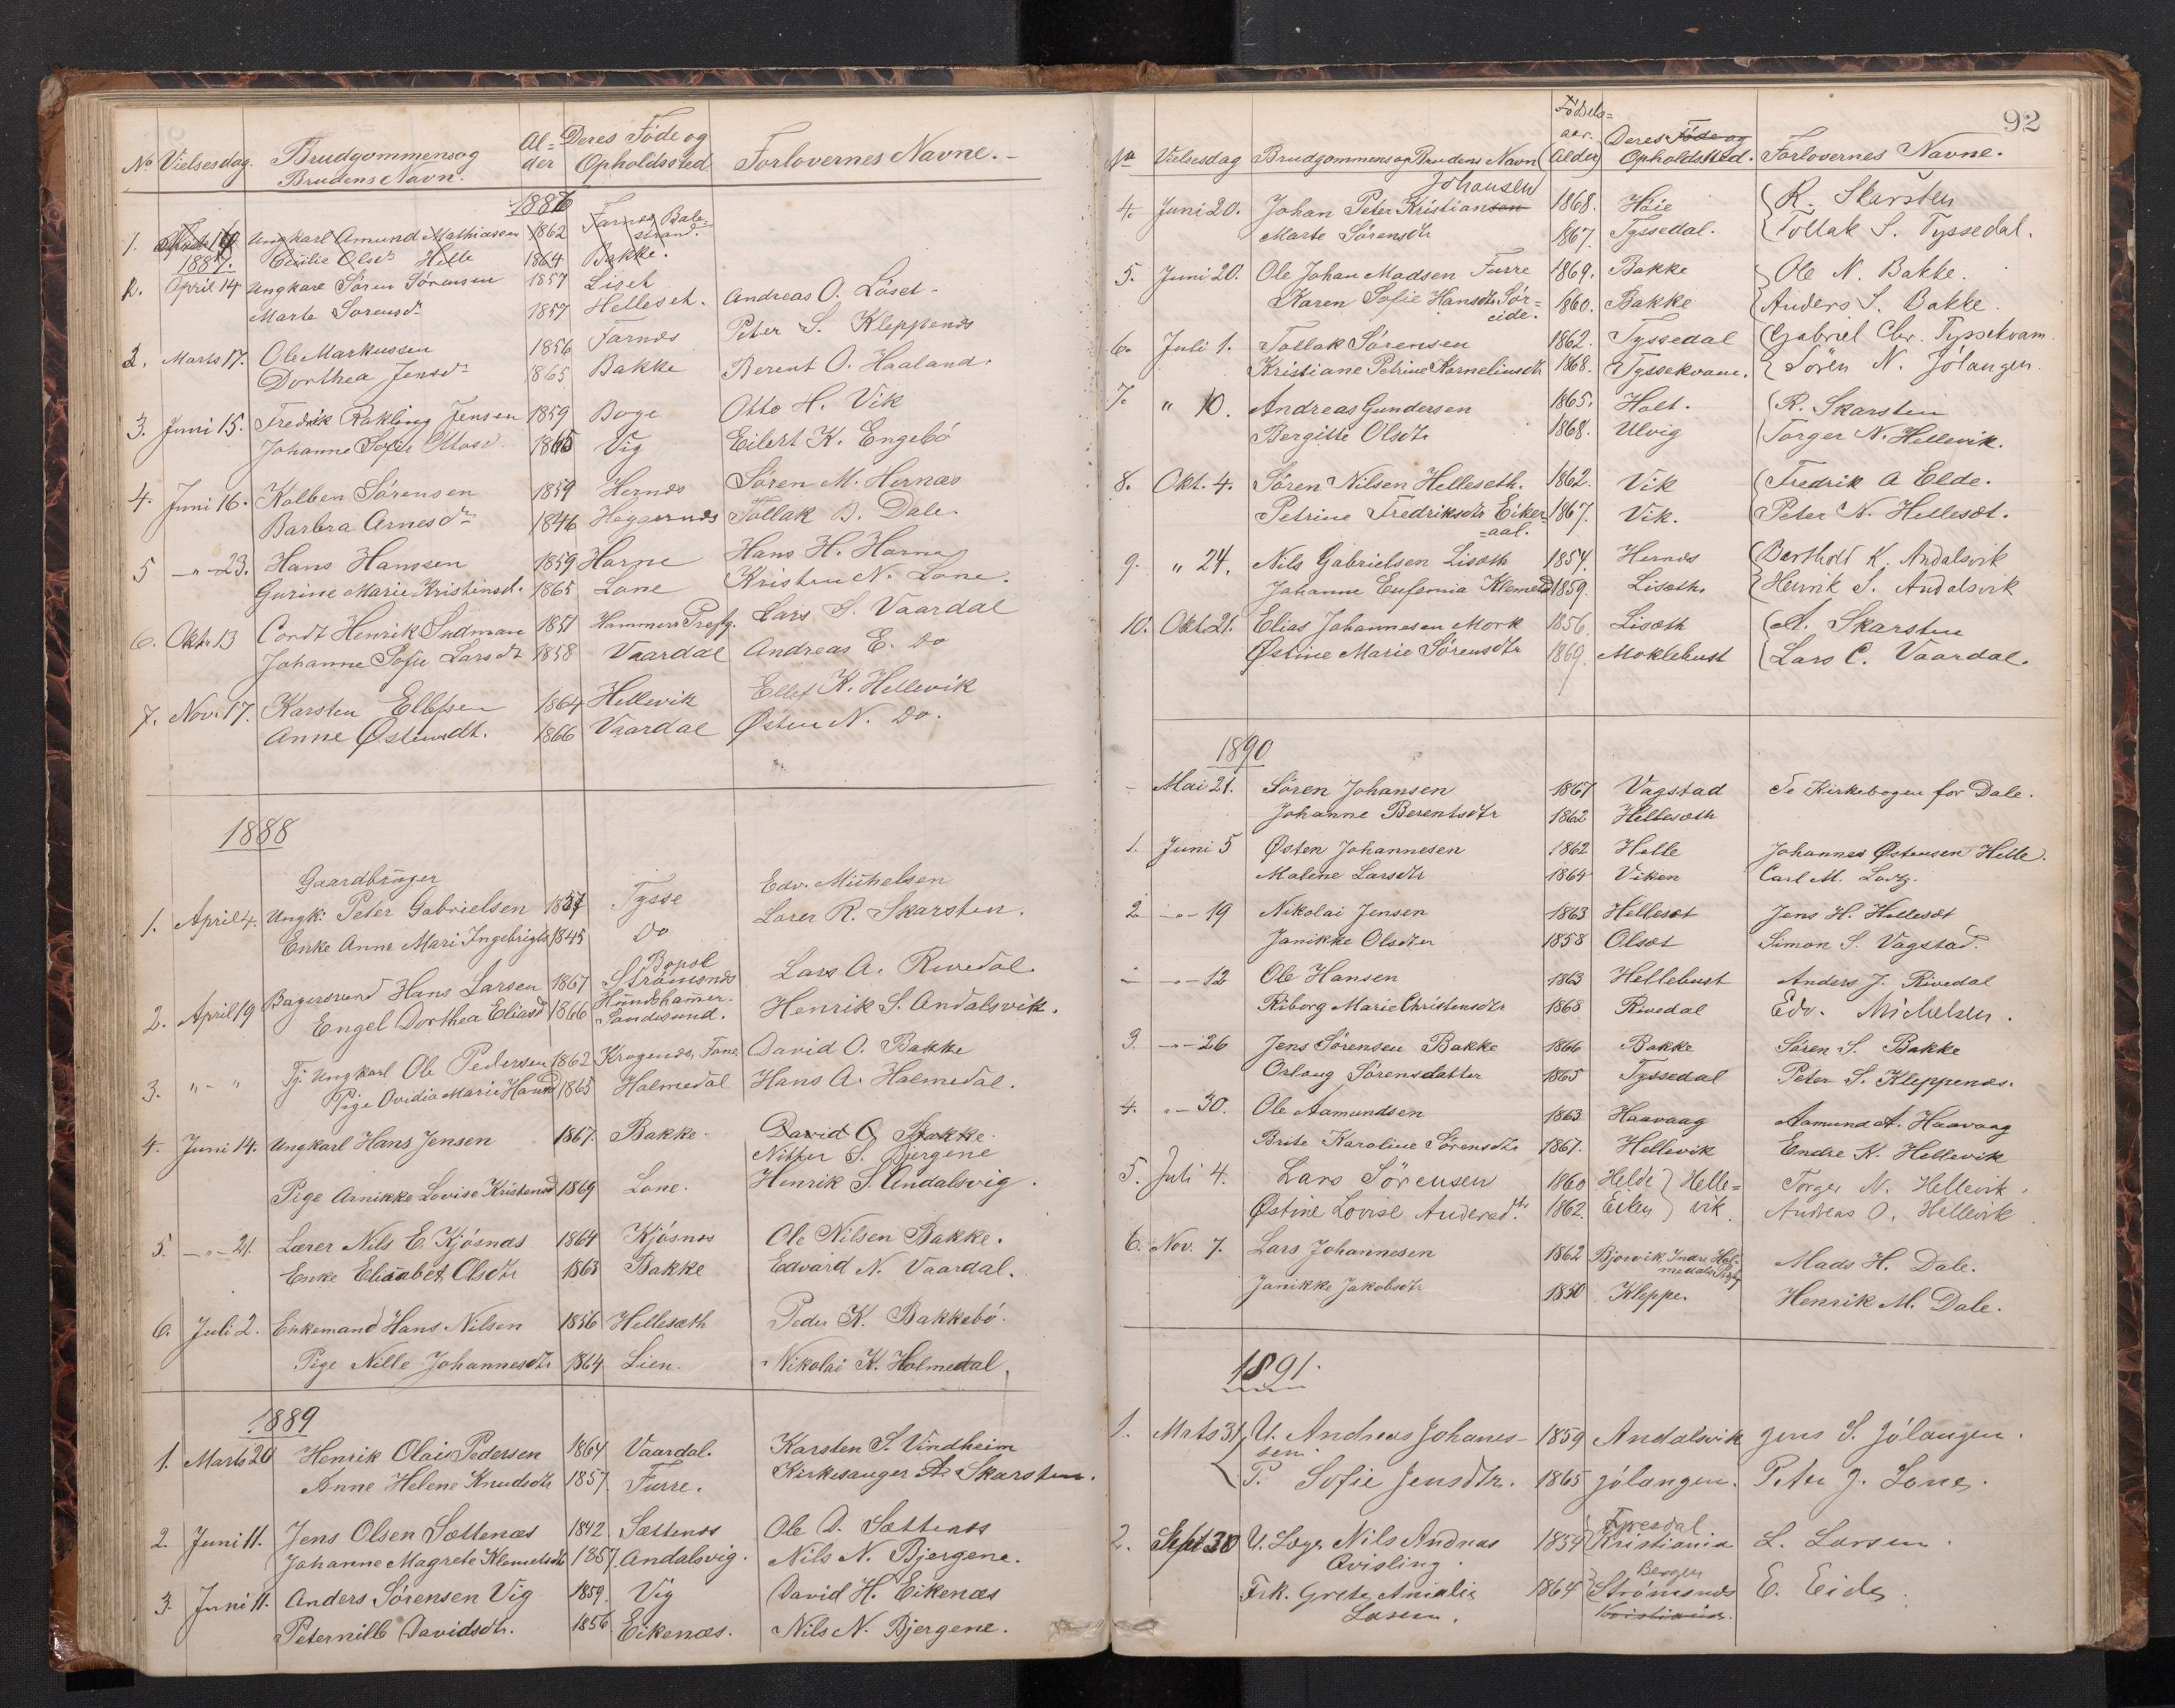 No Vielsesdag. Brudgommens og Al= Deres Føde og Forlovernes Navne.
Brudens Navn. der Opholdssted
1887
1. Ungkarl Amund Mathiassen 1862 Farnes Bale-
strand.
1887. Cecilie Olsdr Helle 1864 Bakke.
April 14 Ungkarl Søren Sørensen 1857 Liset Andreas O. Löset
Marte Sørensdr 1857 Helleset. Peter S. Kleppenes
2. Marts 17. Ole Markussen 1856 Farnes Berent O. Haaland.
Dorthea Jensdr 1865 Bakke
3. Juni 15. Fredrik Jensen 1859 Boge Otto H. Vik
Johanne Sofie Ottosd. 1865 Vig Eilert K. Engebö
4. Juni 16. Kolben Sørensen 1859 Hernes Søren M. Hernæs
Barbra Arnesdr 1846 Tollak B. Dale.
5 -"- 23. Hans Hansen 1859 Horne Hans H. Horne
Gurine Marie Kristensd. 1865 Lone Kristen N. Lone.
6. Okt. 13 Cordt Henrik Sudman 1851 Hammers Prestg. Lars S. Vaardal
Johanne Sofie Larsdt 1858 Vaardal Andreas E. Do
7. Nov. 17. Karsten Ellefsen 1864 Hellevik Ellef K. Hellevik
Anne Østensdt. 1866 Vaardal Østen N. Do.
1888
Gaardbruger
1. April 4. Ungk. Peter Gabrielsen 1857 Tysse Edv. Michelsen
Enke Anne Mari Ingebrigts 1845 Do Lærer R. Skarsten.
2. April 19 Bagersvend Hans Larsen 1867 Bopæl Strömsnes Lars A. Rivedal.
Engel Dorthea Eliasd 1866 Hundshammer. Sandesund. Henrik S. Andalsvik.
3. "-" Tj. Ungkarl Ole Pedersen 1862 Krogenes, Fane David O. Bakke
Pige Ovidia Marie Hansd 1865 Holmedal Hans A. Holmedal.
4. Juni 14. Ungkarl Hans Jensen 1867. Bakke. David O Bakke.
Nitter S. Bjergene
Pige Arnikke Lovise Kristensd 1869 Lone. Henrik S. Andalsvig.
5. -"- 21. Lærer Nils E. Kjösnæs 1864 Kjósnes Ole Nilsen Bakke.
Enke Elisabet Olsdtr 1863 Bakke Edvard N. Vaardal.
6. Juli 2. Enkemand Hans Nilsen 1856 Hellesæth Peder K. Bakkebö.
Pige Nille Johannesdtr 1864 Lien. Nikolai K. Holmedal.
1889
1. Marts 20 Henrik Olai Pedersen 1864 Vaardal. Karsten S. Vindheim
Anne Helene Knudsdtr 1857. Furre. Kirkesanger A. Skarsten.
2. Juni 11. Jens Olsen Sættenæs 1842. Sættenes Ole D. Sættenes
Johanne Magrete Klemetsdtr 1857. Andalsvig. Nils N. Bjergene.
3. Juni 11. Anders Sörensen Vig 1859. Vig David H. Eikenæs
Peternille Davidsdtr. 1856 Eikenæs. Nils N. Bjergene.
92
Fødsels=
aar.
No Vielsesdag Brudgommens og Brudens Navn (Alder) Deres Føde og Opholdssted. Forlovernes Navne.
Johansen
4. Juni 20. Johan Peter Kristiansen 1868. Høie R. Skarsten
Marte Sørensdtr 1867. Tyssedal. Tollak S. Tyssedal.
5. Juni 20. Ole Johan Madsen Furre 1869. Bakke Ole N. Bakke.
Karen Sofie Hansdtr Sör= 1860. Bakke Anders S. Bakke
eide.
6. Juli 1. Tollak Sörensen 1862. Tyssedal Gabriel Chr. Tyssekvam.
Kristiane Petrine Korneliusdtr 1868. Tyssekvam. Sören N. Jólangen.
7. " 10. Andreas Gundersen 1865. Holt. R. Skarsten
Bergitte Olsdtr 1868. Ulvig Torger N. Hellevik.
8. Okt. 4. Sören Nilsen Helleseth. 1862. Vik Fredrik A Elde.
Petrine Fredriksdtr Eiker= 1867. Vik. Peter N. Hellesæt.
=aal.
9. " 24. Nils Gabrielsen Lisæth 1854. Hernes Berthold K. Andalsvik
Johanne Eufemia Klemetsd 1859. Lisæth. Henrik S. Andalsvik
10. Okt. 21. Elias Johannesen Mork 1856. Lisæth A. Skarsten
Østine Marie Sørensdtr 1869. Moklebust Lars C. Vaardal.
1890
- Mai 21. Sören Johansen 1867 Vagstad Se Kirkebogen for Dale.
Johanne Berentsdtr 1862 Hellesæth
1. Juni 5 Østen Johannesen 1862 Helle Johannes Østensen Helle.
Malene Larsdtr 1864 Viken Carl M. Lodtz.
2 -"- 19 Nikolai Jensen 1863 Hellesæt Jens H. Hellesæt
Janikke Olsdtr 1858 Olsæt Simon S. Vagstad.
- -"- 12 Ole Hansen 1863 Hellebust Anders J. Rivedal
Riborg Marie Christensdtr 1868 Rivedal Edv. Michelsen.
3. -"- 26 Jens Sörensen Bakke 1866 Bakke Søren S. Bakke
Orlaug Sörensdatter 1865 Tyssedal Peter S. Kleppenæs.
4. "- 30. Ole Aamundsen 1863 Haavaag Aamund A. Haavaag
Brite Karoline Sörensdtr 1867. Hellevik Endre K. Hellevik
5. Juli 4. Lars Sörensen 1860 Helde Helle= Torger N. Hellevik.
Østine Lovise Andersdtr. 1862. Eiken vik. Andreas O. Hellevik.
6. Nov. 7. Lars Johannesen 1862 Bjorvik, Indre Hol- Mads H. Dale.
medals
Janikke Jakobsdtr 1850 Kleppe. Henrik M. Dale.
1891.
1. Mrts 31. U. Andreas Johanes- 1859 Andalsvik Jens S. Jólangen.
sen.
P. Sofie Jensdtr. 1865 Jólangen. Peter J. Lone.
2. Sept 30 U. Læge Nils Andreas 1854 Fyresdal Kristiania L. Larsen.
Qvisling.
Frk. Grete Amalie 1864 Bergen Strömsnes E. Eide.
Lasen. Kristiania.